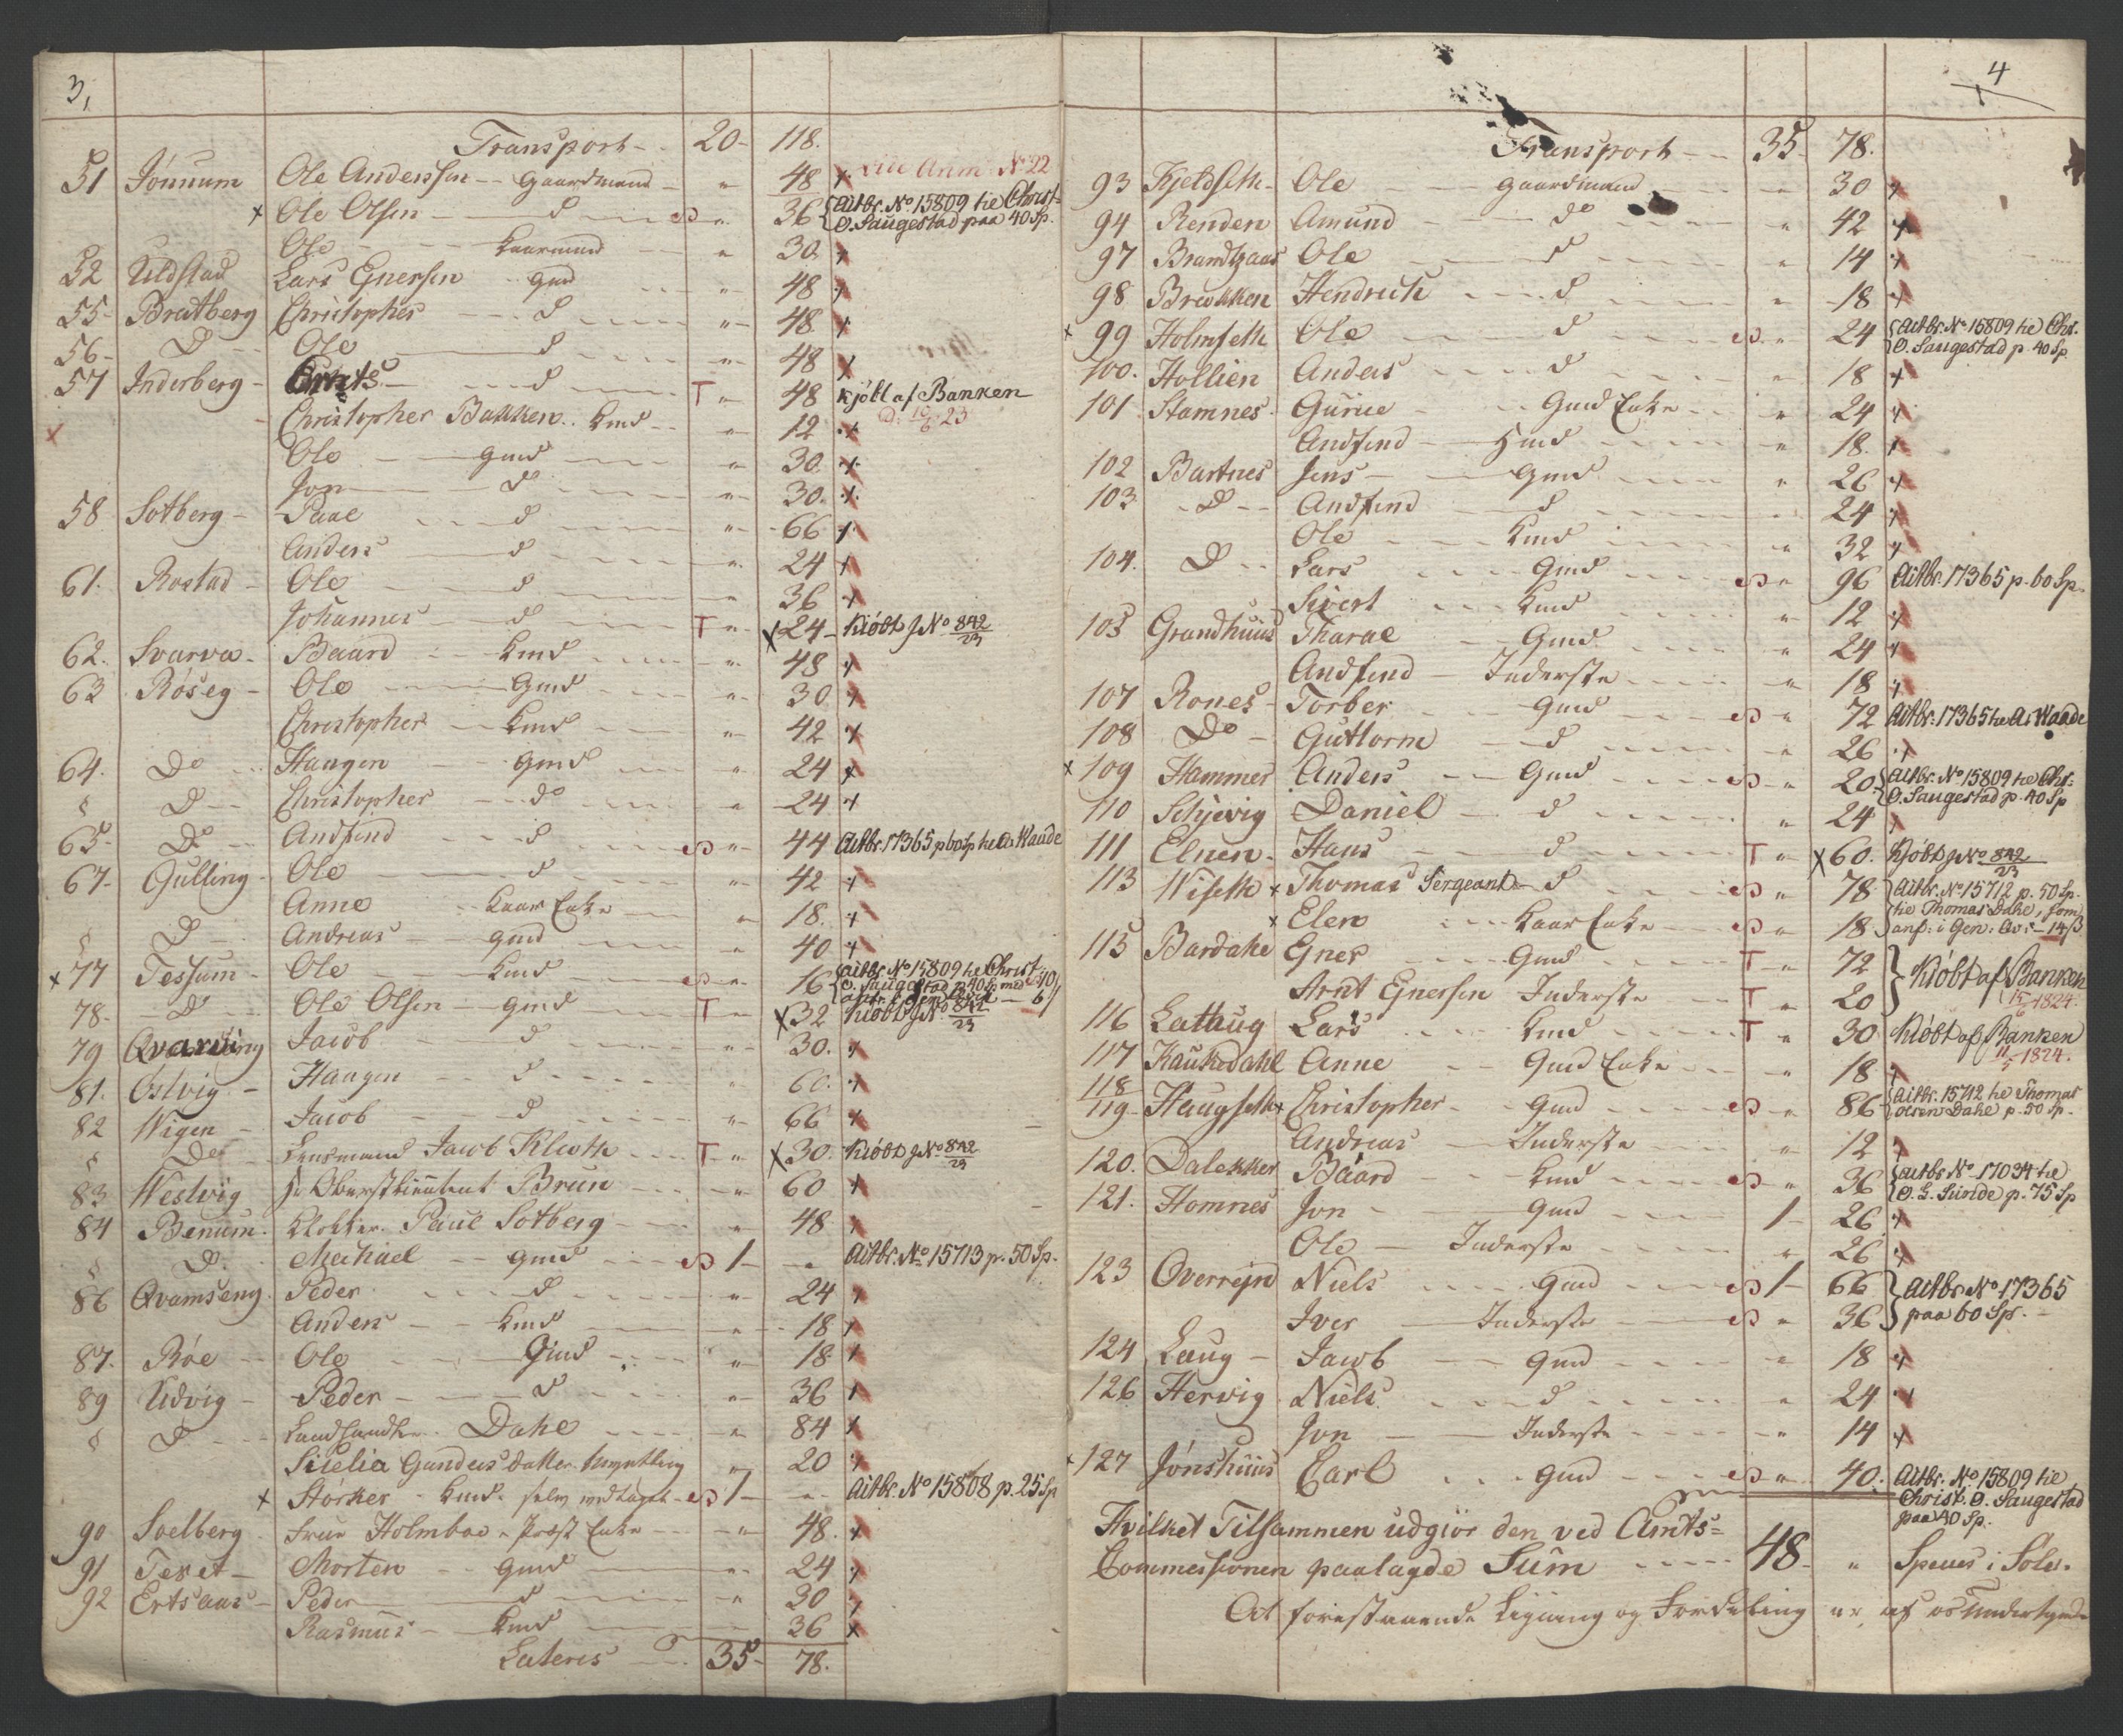 3,
Transport 20 - 118.
51 Jönnum Ole Anderssen - Gaardmand - " 48 x Anm No 22
x Ole Olsen - d " 36 {Aitbr. No 15809 tie Christ: O. Saugestad paa 40 Sp.
Ole - Kaarmand " 30 x
52 Uldstad Lars Enersen Gmd " 48 x
55 Bratberg Christopher d " 48 x
56 D Ole d " 48 x
57 Inderberg - d T " 48 kjöbt af Banken
x Christopher Bakken Kmd " 12 x 23
Ole Gmd " 30. x
Jon d " 30. x
58 Sotberg Paal d " 66 x
Anders d " 24 x
61. Rostad Ole d " 36 x
Johannes d T " x 24 Kiöbt J No 842/23
62. Svarva Baard Kmd " 48 x
63 Röseg Ole Gmd " 30 x
Christopher Kmd " 42 x
64. Do Haagen Gmd " 24 x
D Christopher do " 24 x
65 Do Andfind d " 44 Aitbr. 17365 p 60 Sp tie A. Waade
67 Gulling Ole d " 42 x
Anne Kaar Enke " 18. x
D Andreas Gmd " 40 x
x 77 Tessum Ole Kmd " 16 {Aitbr. No 15809 tie Christ. O. Saugestad p 40 Sp med
78. D Ole Olsen Gmd T " x 32 Kiöbt J No 842/23
79 Jacob d " 30. x
81. Östvig Haagen d " 60. x
82 Wigen Jacob d " 66 x
Do Lensmand Jacob Klüwer T " x 30. Kiöbt J No 842/23
83 Westvig Hr Oberstlieutent Brun " 60 x
84 Benum. Klokker Paul Sotberg " 48 x
D. Michael Gmd 1 - " Aitbr. No 15713 p. 50 Sp.
86 Qvamseng Peder d " 24 x
Anders Kmd " 18 x
87. Röe Ole Gmd " 18 x
89 Udvig Peder d " 36 x
D Landhandler Dahl " 84 x
Sielia Gundersdatter " 20 x
x Störker Kmd. selv 1 - " Aitbr. No 15808 p. 25 Sp
90 Soelberg Frue Holmboe Præst Enke " 48. x
91 Texet Morten Gmd " 24 x
92 Ertsaas Peder d " 30 x
Rasmus Kmd " 36 x
Lateris 35 - 78.
4
Transport 35 78.
93 Kjeldseth Ole Gaardmand " 30 x
94 Renden Amund do " 42 x
97 Brandtzaas Ole d " 14 x
98 Brekken Hendrich d " 18 x
x 99 Holmseth Ole d " 24 {Aitbr. No 15809 tie Chr. O. Saugestad p. 40 Sp
100. Hollien Anders d " 18 x
101 Stamnes Gurie Gmd Enke " 24 x
Andfind Hmd " 18. x
102 Bartnes Jens Gmd " 26 x
103. D Andfind d " 24 x
Ole Kmd " 32 x
104. D Lars Gmd " 96 Aitbr. 17365 p. 60 Sp.
Sivert Kmd " 12 x
105 Grandhuus Tharal Gmd " 24 x
Andfind Inderste " 18 x
107 Rones Torber Gmd " 72 Aitbr. 17365 tie A. Waade
108 Do Guttorm d " 26 x
x 109 Hammer Anders Gmd " 20 {Aitbr. No 15809 tie Chr: O. Saugestad p. 40 Sp
110 Schjevig Daniel d " 24 x
111 Elnen Hans d T " x 60. Kjöbt J No 842/23
113 Wiseth x Thomas Sergeant d " 78 Aitbr. No 15712 p. 50 Sp.
x Elen Kaar Enke " 18 tie Thomas Dahl, som anf: i Gen:
115 Bardahl Ener Gmd T " 72 } Kiöbt af Banken
Arnt Enersen Inderste T " 20 1824.
116 Lathug Lars Kmd T " 30 Kiöbt af Banken
117 Kaukedahl Anne Gmd Enke " 18 x 1824.
118/119 Haugseth x Christopher Gmd " 86 {Aitbr. 15712 tie Thomas Olsen Dahl p. 50 Sp.
Andreas Inderste " 12 x
120. Dalekker Baard Kmd " 36 {Aitbr No 17034 tie O. G. Sunde p. 75 Sp
121. Homnes Jon Gmd 1 - 26 x
Ole Inderste " 26 x
123 Overrejn Niels Gmd 1 - 66 } Aitbr No 17365
Iver Inderste " 36 } paa 60 Sp.
124 Laug Jacob Gmd " 18 x
126. Hervig Niels d " 24 x
Jon Inderste " 14 x
x 127 Jönshuus Carl Gmd " 40. Aitbr. No 15809 tie Christ. O. Saugestad paa 40 Sp.
Hvilket Tilsammen udgiør den ved Amts=
Commissionen paalagde Sum 48 - " Specier i Sölv.
At forestaaende Ligning og Fordeling er af os Undertegnede